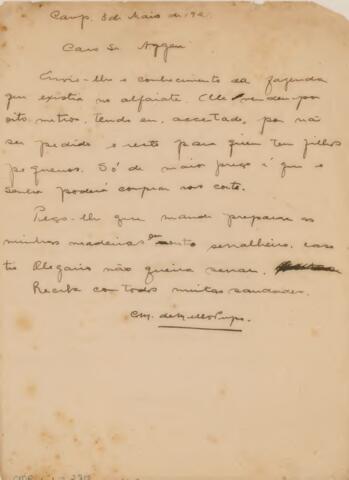 Camp. 3 de Maio de 192
Caro Sr. Aggeu
Envio-lhe o conhecimento da fazenda
que existia no alfaiate. Elle vendeu por
oito metros, tendo eu, acceitado, por não
ser pedido o resto para quem tem filhos
pequenos. Só de maior preço é que o
senhor poderá comprar nos corte.
Peço-lhe que mande preparar as
minhas madeiras em outro serralheiro, caso
tio Olegario não queira serrar.
Receba com todos muitas saudades.
C.M. de Mello Pupo.